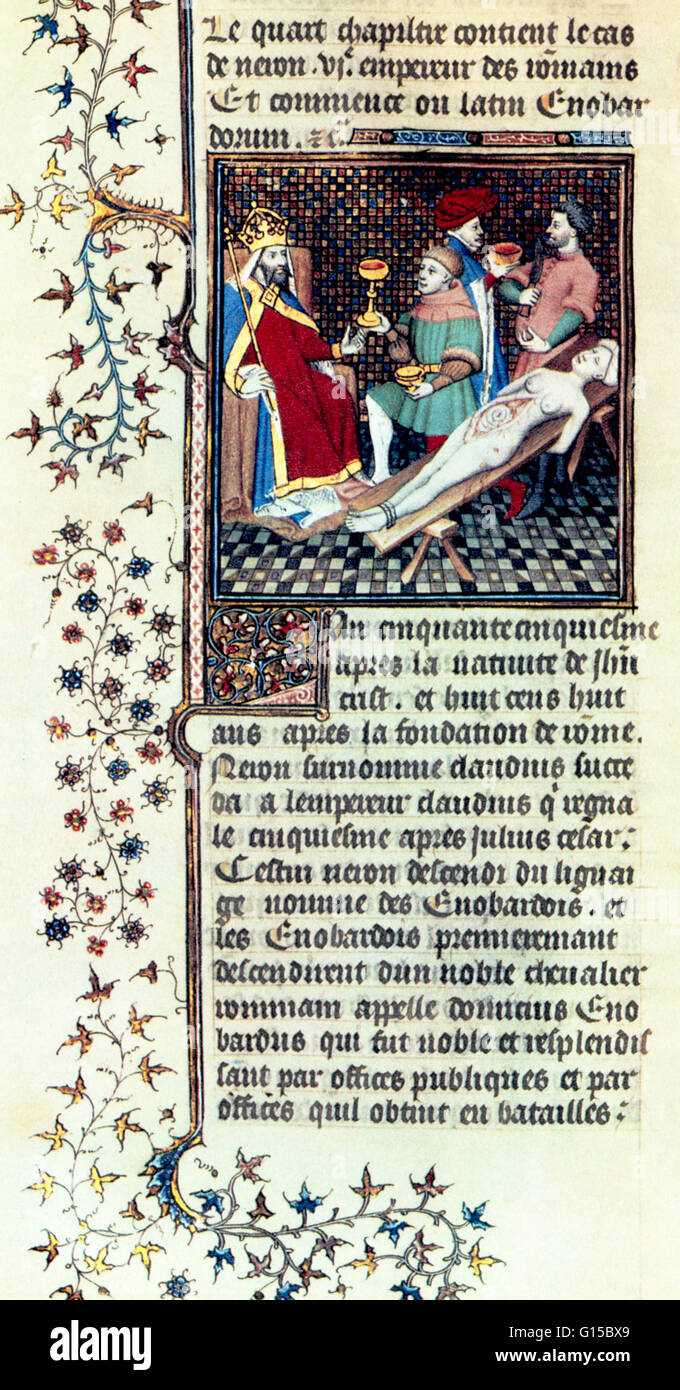 Le quart chapiltre contient le cas
de neron .vi.ͤ empereur des rōmains
Et commence ou latin Enobar
dorum. ⁊c̄.
An cinquantecinquiesme
apres la natiuite de Jhū
crist. et huit cens huit
ans apres la fondation de rōme.
Neron surnomme claudius succe
da a lempereur claudius q̄ regna
le cinquiesme apres julius cesar:
Cestui neron descendi du lignai
ge nomme des Enobardois. et
les Enobardois premieremant
descendirent dun noble cheualier
rommain appelle domicius Eno
bardus qui fut noble et resplendis
sant par offices publiques et par
offices quil obtint en batailles:
alamy
Image ID: G15BX9
www.alamy.com